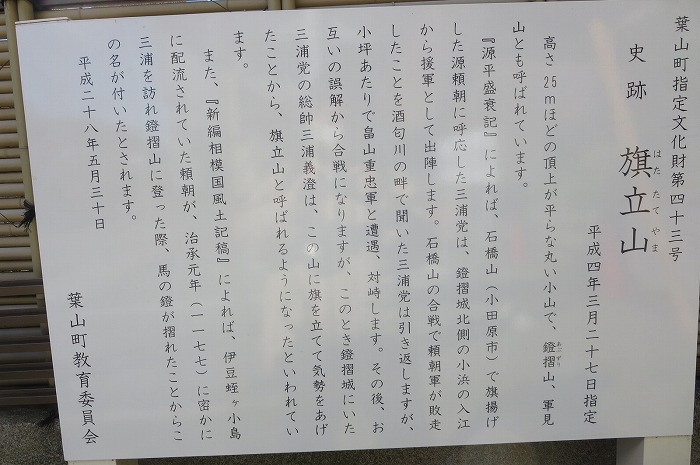 葉山町指定文化財第四十三号
史跡 旗立山
はたたてやま
平成四年三月二十七日指定
高さ25mほどの頂上が平らな丸い小山で、鐙摺山、軍見
あぶずり
山とも呼ばれています。
『源平盛衰記』によれば、石橋山（小田原市）で旗揚げ
した源頼朝に呼応した三浦党は、鐙摺城北側の小浜の入江
から援軍として出陣します。石橋山の合戦で頼朝軍が敗走
したことを酒匂川の畔で聞いた三浦党は引き返しますが、
小坪あたりで畠山重忠軍と遭遇、対峙します。その後、お
互いの誤解から合戦になりますが、このとき鐙摺城にいた
三浦党の総帥三浦義澄は、この山に旗を立てて気勢をあげ
たことから、旗立山と呼ばれるようになったといわれてい
ます。
また、『新編相模国風土記稿』によれば、伊豆蛭ヶ小島
に配流されていた頼朝が、治承元年（一一七七）に密かに
三浦を訪れ鐙摺山に登った際、馬の鐙が摺れたことからこ
の名が付いたとされます。
平成二十八年五月三十日
葉山町教育委員会